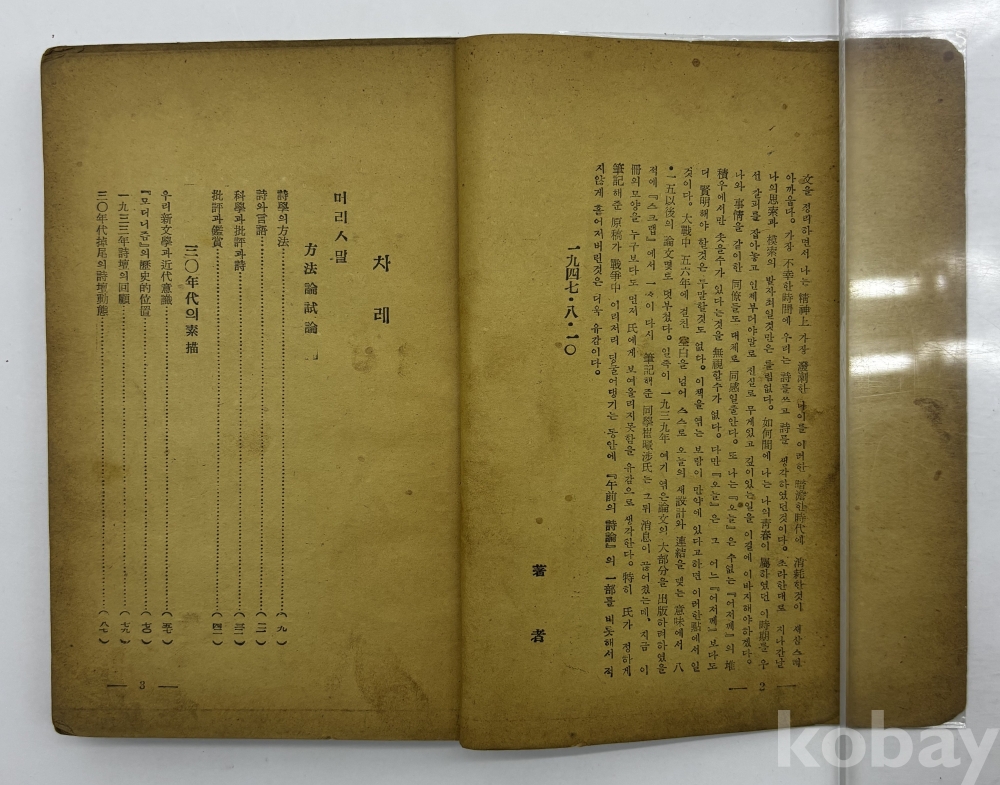 文을 정리하면서 나는 精神上 가장 潑剌한 나이를 이러한 暗澹한時代에 消耗한것이 새삼스리
아까웁다. 가장 不幸한時間에 우리는 詩를쓰고 詩를 생각하였던것이다. 초라한대로 지나간날
나의思索과 模索의 발자최일것만은 틀림없다. 如何間에 나는 나의靑春이 屬하였던 이時期를 우
선 갈피를 잡아놓고 인제부터야말로 진실로 무게있고 깊이있는일을 이길에 이바지해야하겠다.
나와 事情을 같이한 同僚들도 대체로 同感일줄안다. 또 나는 『오늘』은 수없는 『어저께』의 堆
積우에서만 솟을수가 있다는것을 無視할수가 없다. 다만 『오늘』은 그 어느 『어저께』보다도
더 賢明해야 할것은 두말할것도 없다. 이책을 엮는 보람이 만약에 있다고하면 이러한點에서 일
것이다. 大戰中 五六年에 걸친 空白을 넘어 스스로 오늘의 새設計와 連結을 맺는 意味에서 八
·一五以後의 論文몇도 덧부쳤다. 일즉이 一九三九年 여기 엮은論文의 大部分을 出版하려하였을
적에 『스크랩』에서 一々이 다시 筆記해준 同學崔 涉氏는 그뒤 消息이 끊어졌는데, 지금 이
冊의모양을 누구보다도 먼저 氏에게 보여올리지못함을 유감으로 생각한다. 特히 氏가 정하게
筆記해준 原稿가 戰爭中 이리저리 딩굴어댕기는 동안에 『午前의 詩論』의 一部를 비롯해서 적
지않게 흩어저버린것은 더욱 유감이다.
一九四七·八·一〇
著者
— 2 —
차례
머리ㅅ말
方法論試論
詩學의方法……(九)
詩와言語……(二一)
科學과批評과詩……(三二)
批評과鑑賞……(四一)
三〇年代의素描
우리新文學과近代意識……(五七)
『모더니즘』의歷史的位置……(七〇)
一九三三年詩壇의回顧……(七九)
三〇年代掉尾의詩壇動態……(八七)
— 3 —
kobay